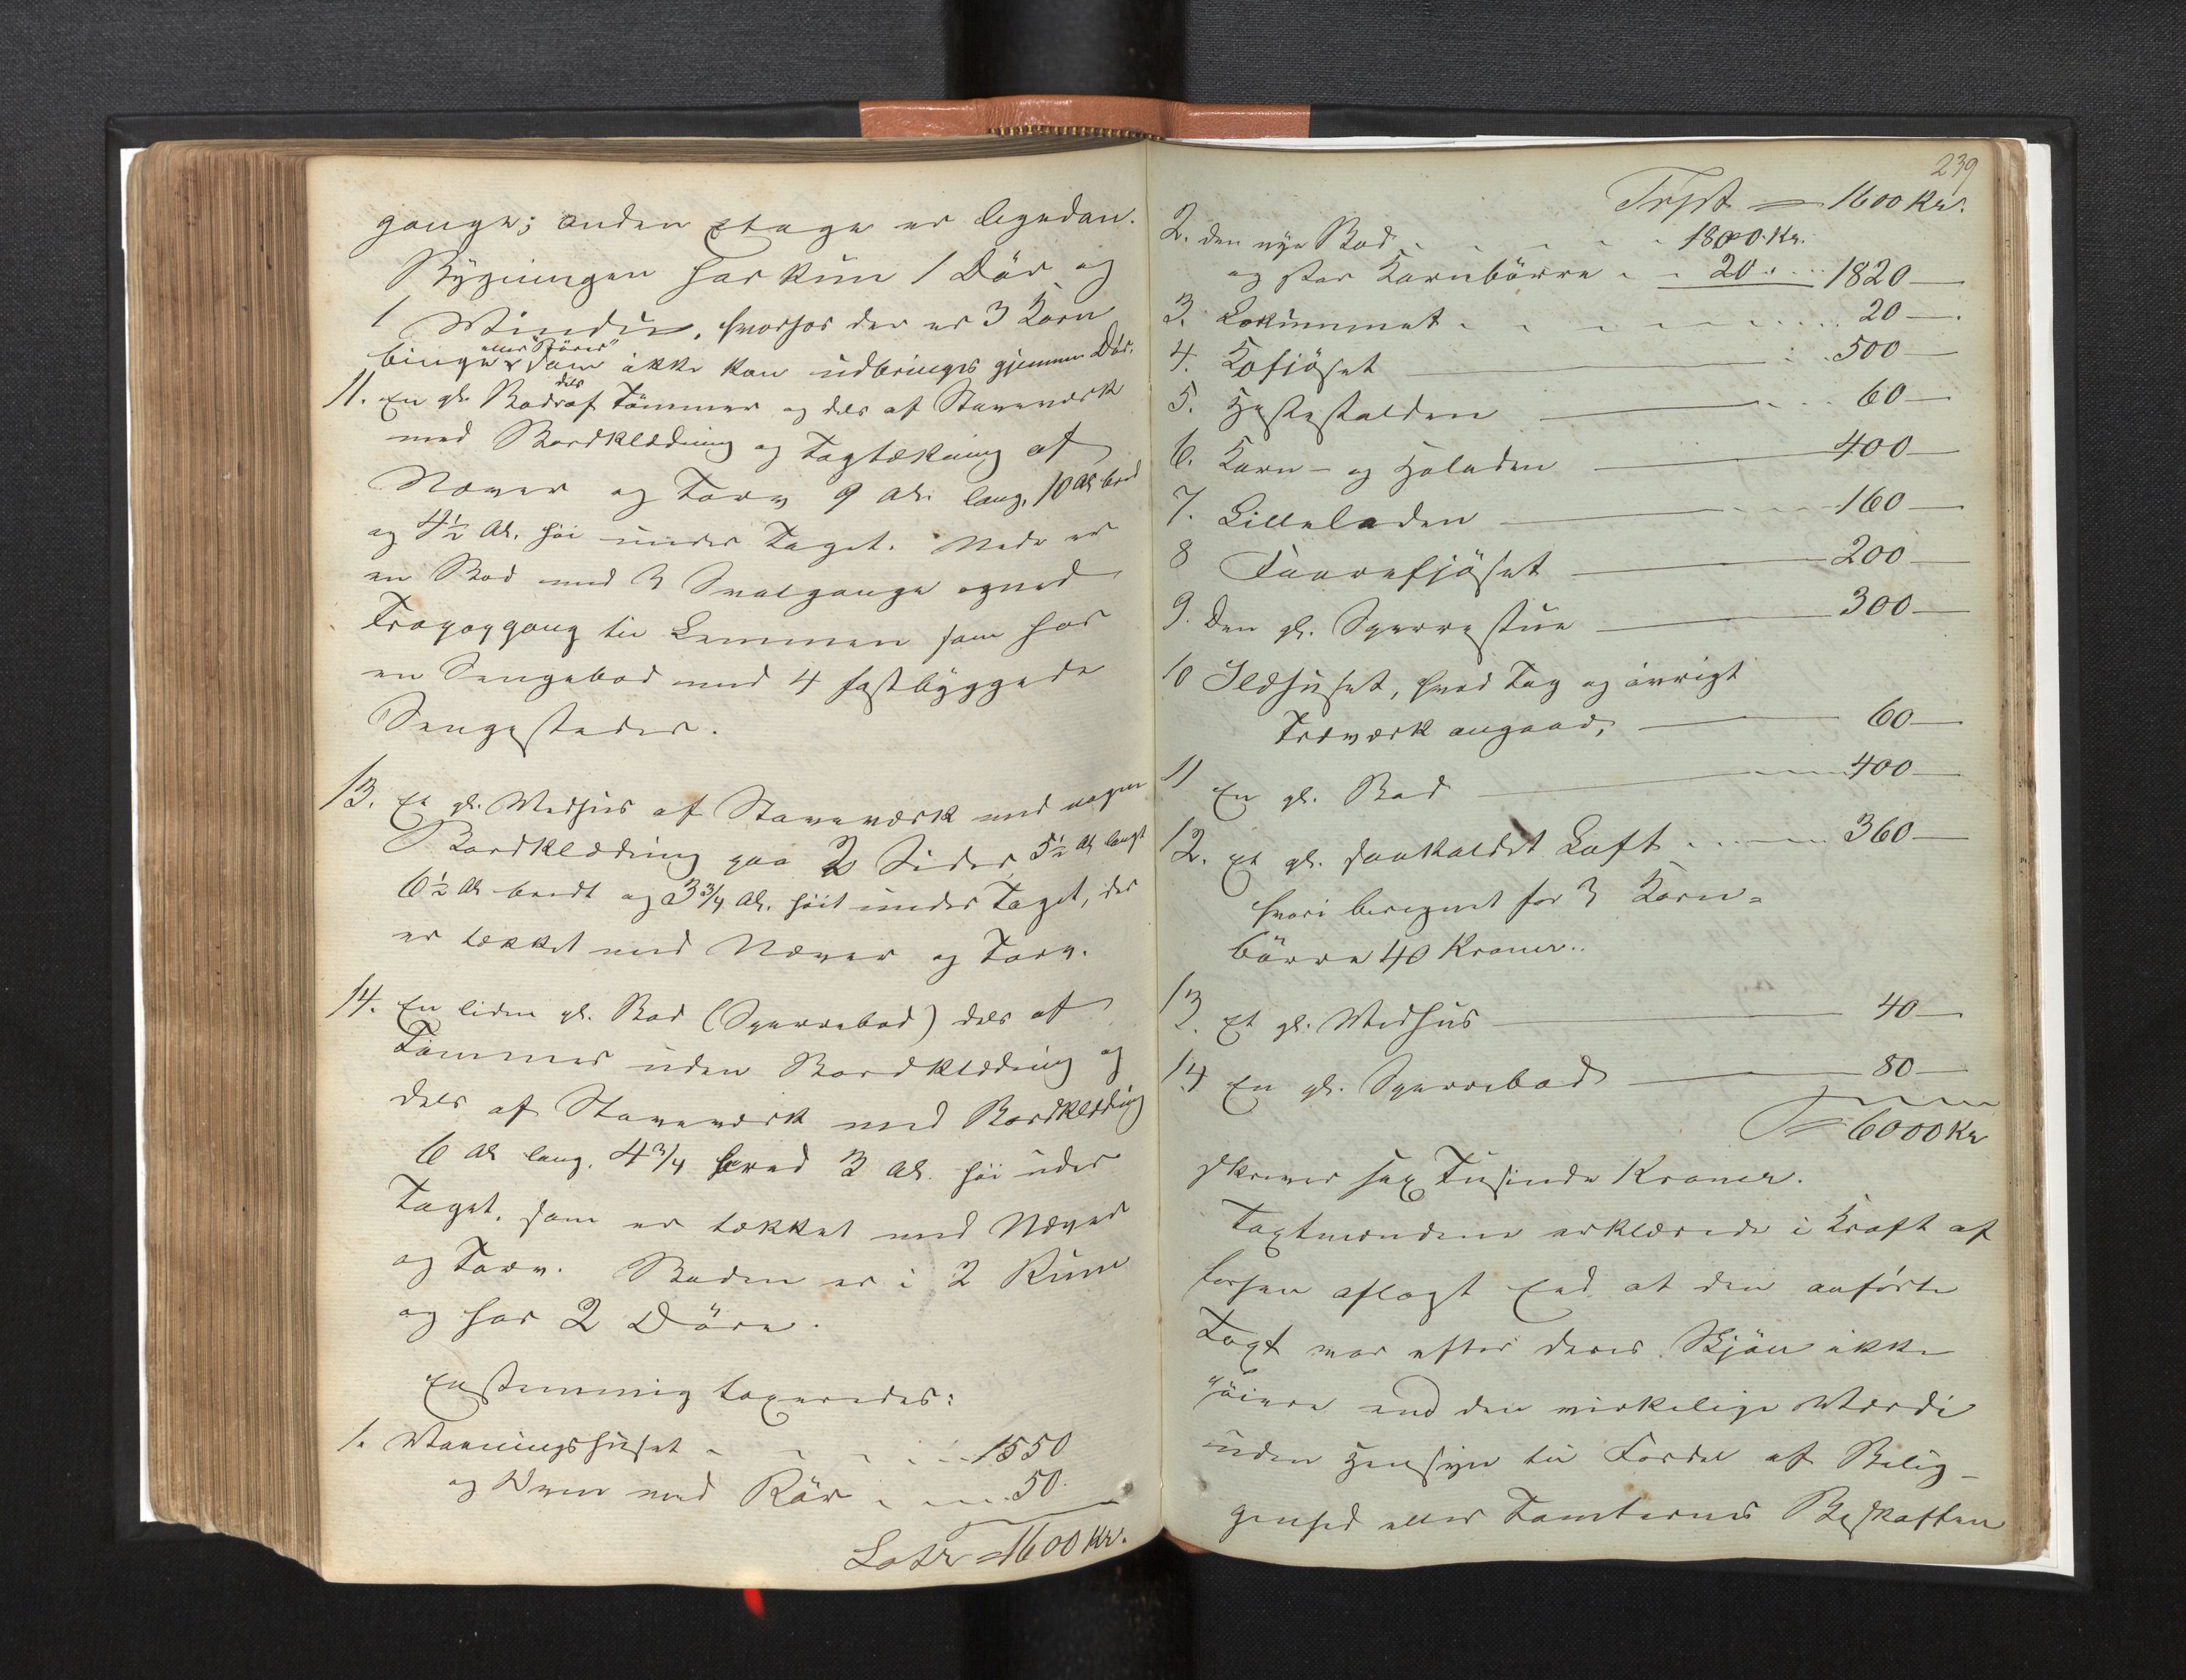 gange; anden Etage er ligedan.
Bygningen har kun 1 Dör og
1 Vindue, hvorhos der er 3 Korn
binger eller "Börer" som ikke kan udbringes gjennem Dör.
11. En gl. Bod dels af Tömmer og dels af Stavværk
med Bordklædning og Tagtækning af
Næver og Torv 9 Al. lang, 10 Al bred
og 4½ Al. höi under Taget. Nede er
en Bod med 3 Svalgange og med
Trapegang til Lemmen som har
en Sengebod med 4 fastbyggede
Sengesteder.
13. Et gl. Vedhus af Stavværk med nogen
Bordklædning paa 2 Sider, 5½ Al langt
6½ Al bredt og 3¾ Al. höit under Taget, der
er tækket med Næver og Torv.
14. En liden gl. Bod (Sperrebod) dels af
Tömmer uden Bordklædning og
dels af Stavværk med Bordklædning
6 Al lang, 4¾ bred 3 Al. höi under
Taget, som er tækket med Næver
og Torv. Boden er i 2 Rum
og har 2 Döre.
Enstemmig taxeredes:
1. Vaaningshuset 1550
og Ovn med Rör 50.
Latr = 1600 Kr.
239
Trspt = 1600 Kr.
2. Den nye Bod 1800. Kr.
og stor Kornbörre 20 1820 —
3. Lokummet 20 —
4. Kofjöset 500 —
5. Hestestalden 60 —
6. Korn- og Höladen 400 —
7. Lilleladen 160 —
8 Faarefjöset 200 —
9. Den gl. Sperrestue 300 —
10 Ildhuset, hvad Tag og övrigt
Træværk angaar, 60 —
11 En gl. Bod 400 —
12. Et gl. saakaldet Loft 360 —
hvori beregnet for 3 Korn=
börre 40 Kroner.
13. Et gl. Vedhus 40 —
14 En gl. Sperrebod 80 —
= 6000 Kr
skriver sex Tusinde Kroner.
Taxtmændene erklærede i Kraft af
forhen aflagt Eed at den anförte
Taxt var efter deres Skjön ikke
höiere end den virkelige Værdi
uden Hensyn til Fordel af Belig-
genhed eller Tomternes Beskaffen